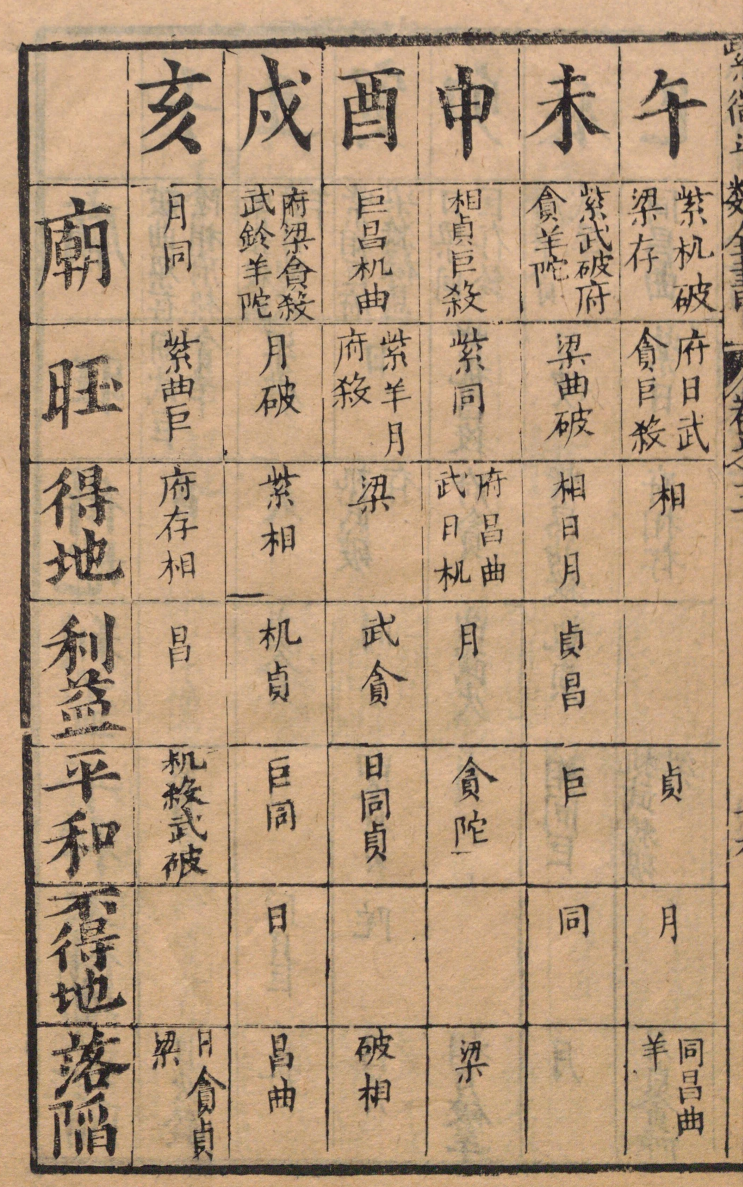 午 未 申 酉 戌 亥
紫机破梁存 紫武破府貪羊陀 相貞巨殺 巨昌机曲 府梁貪殺武鈴羊陀 月同 廟
府日武貪巨殺 梁曲破 紫同 紫羊月府殺 月破 紫曲巨 旺
相 相日月 府昌曲武日机 梁 紫相 府存相 得地
貞昌 月 武貪 机貞 昌 利益
貞 巨 貪陀 日同貞 巨同 机殺武破 平和
月 同 日 不得地
同昌曲羊 梁 破相 昌曲 日貪貞梁 落陷
數全書